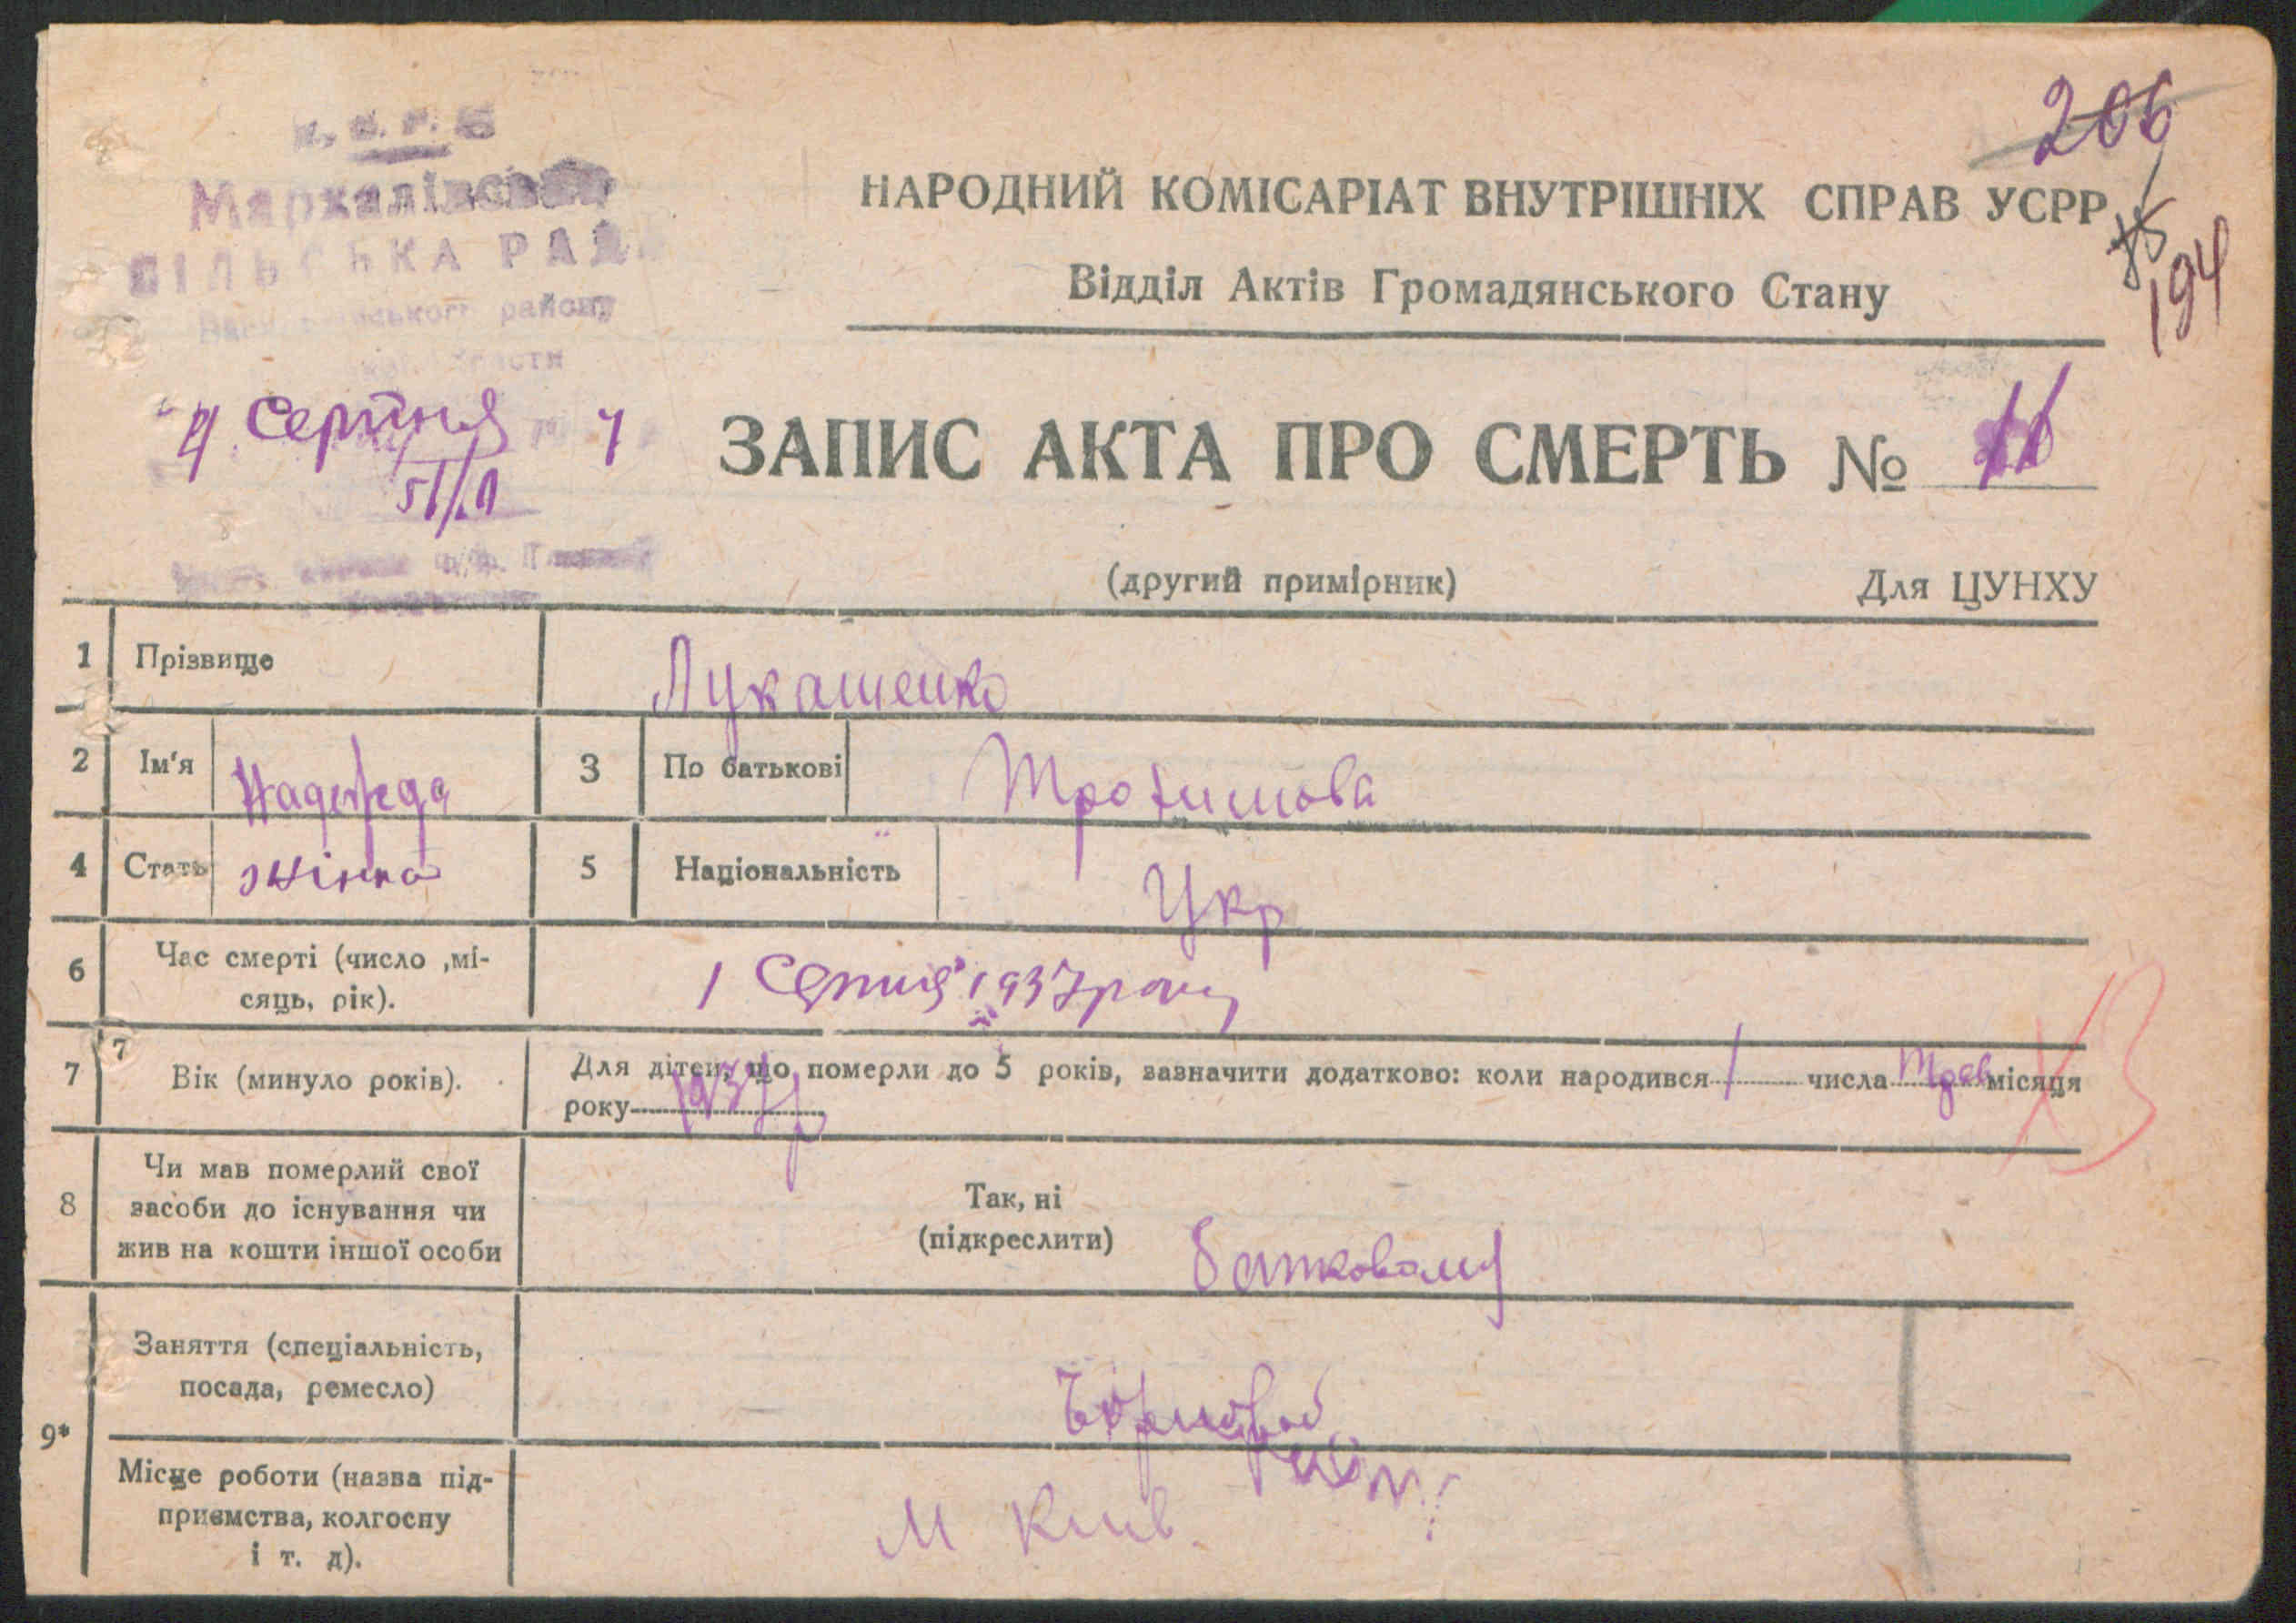 206
Мархалівська
СІЛЬСЬКА РАДА
району
НАРОДНИЙ КОМІСАРІАТ ВНУТРІШНІХ СПРАВ УСРР
75
194
Відділ Актів Громадянського Стану
4 Серпня 7
ЗАПИС АКТА ПРО СМЕРТЬ № 11
(другий примірник) Для ЦУНХУ
1 Прізвище Лукашенко
2 Ім'я Надежда 3 По батькові Трохимова
4 Стать жінка 5 Національність Укр
6 Час смерті (число ,мі-
сяць, рік).
1 Серпня 1937 року
7 7 Вік (минуло років).
Для дітей, що померли до 5 років, зазначити додатково: коли народився 1 числа Трав місяця
року 1937 р
8 Чи мав померлий свої
засоби до існування чи
жив на кошти іншої особи
Так, ні
(підкреслити)
9*
Заняття (спеціальність,
посада, ремесло)
Місце роботи (назва під-
приємства, колгоспу
і т. д).
М Київ.